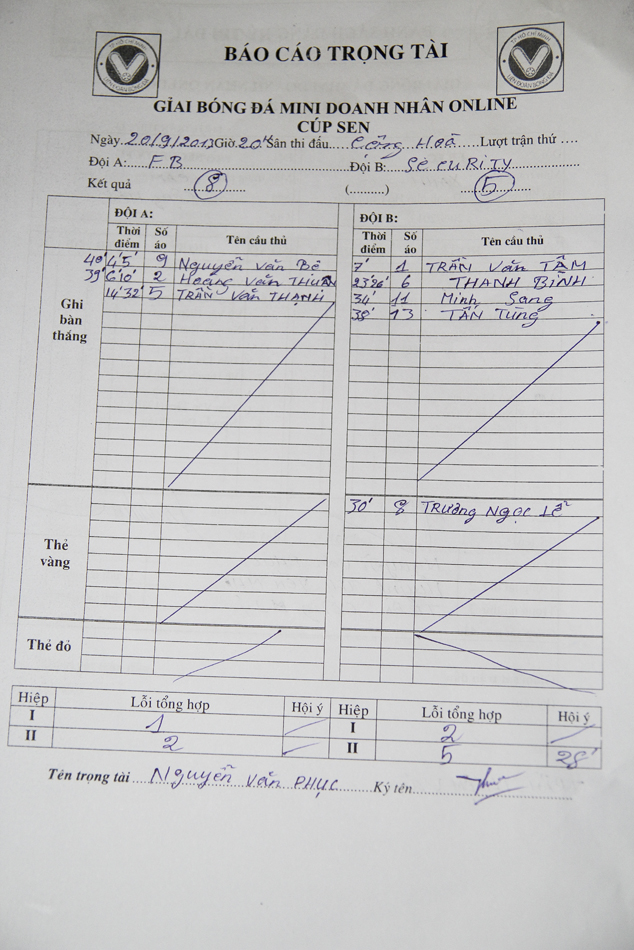 BÁO CÁO TRỌNG TÀI
GIẢI BÓNG ĐÁ MINI DOANH NHÂN ONLINE
CÚP SEN
Ngày 20/9/201 Giờ: 20h Sân thi đấu Cộng Hoà Lượt trận thứ ....
Đội A: FB Đội B: SECURITY
Kết quả 8 (..........) 5
ĐỘI A: ĐỘI B:
Thời điểm Số áo Tên cầu thủ Thời điểm Số áo Tên cầu thủ
Ghi bàn thắng
40' 4'5' 9 Nguyễn Văn Bê 7' 1 TRẦN VĂN TÂM
39' 6'10' 2 Hoàng Văn THUẬN 23'26' 6 THANH BÌNH
14'32' 5 TRẦN VĂN THẠNH 34' 11 Minh Sang
38' 13 TẤN TÙNG
Thẻ vàng
30' 8 TRƯƠNG NGỌC LÊ
Thẻ đỏ
Hiệp Lỗi tổng hợp Hội ý Hiệp Lỗi tổng hợp Hội ý
I 1 I 2
II 2 II 5 28'
Tên trọng tài NGUYỄN VĂN PHỤC Ký tên